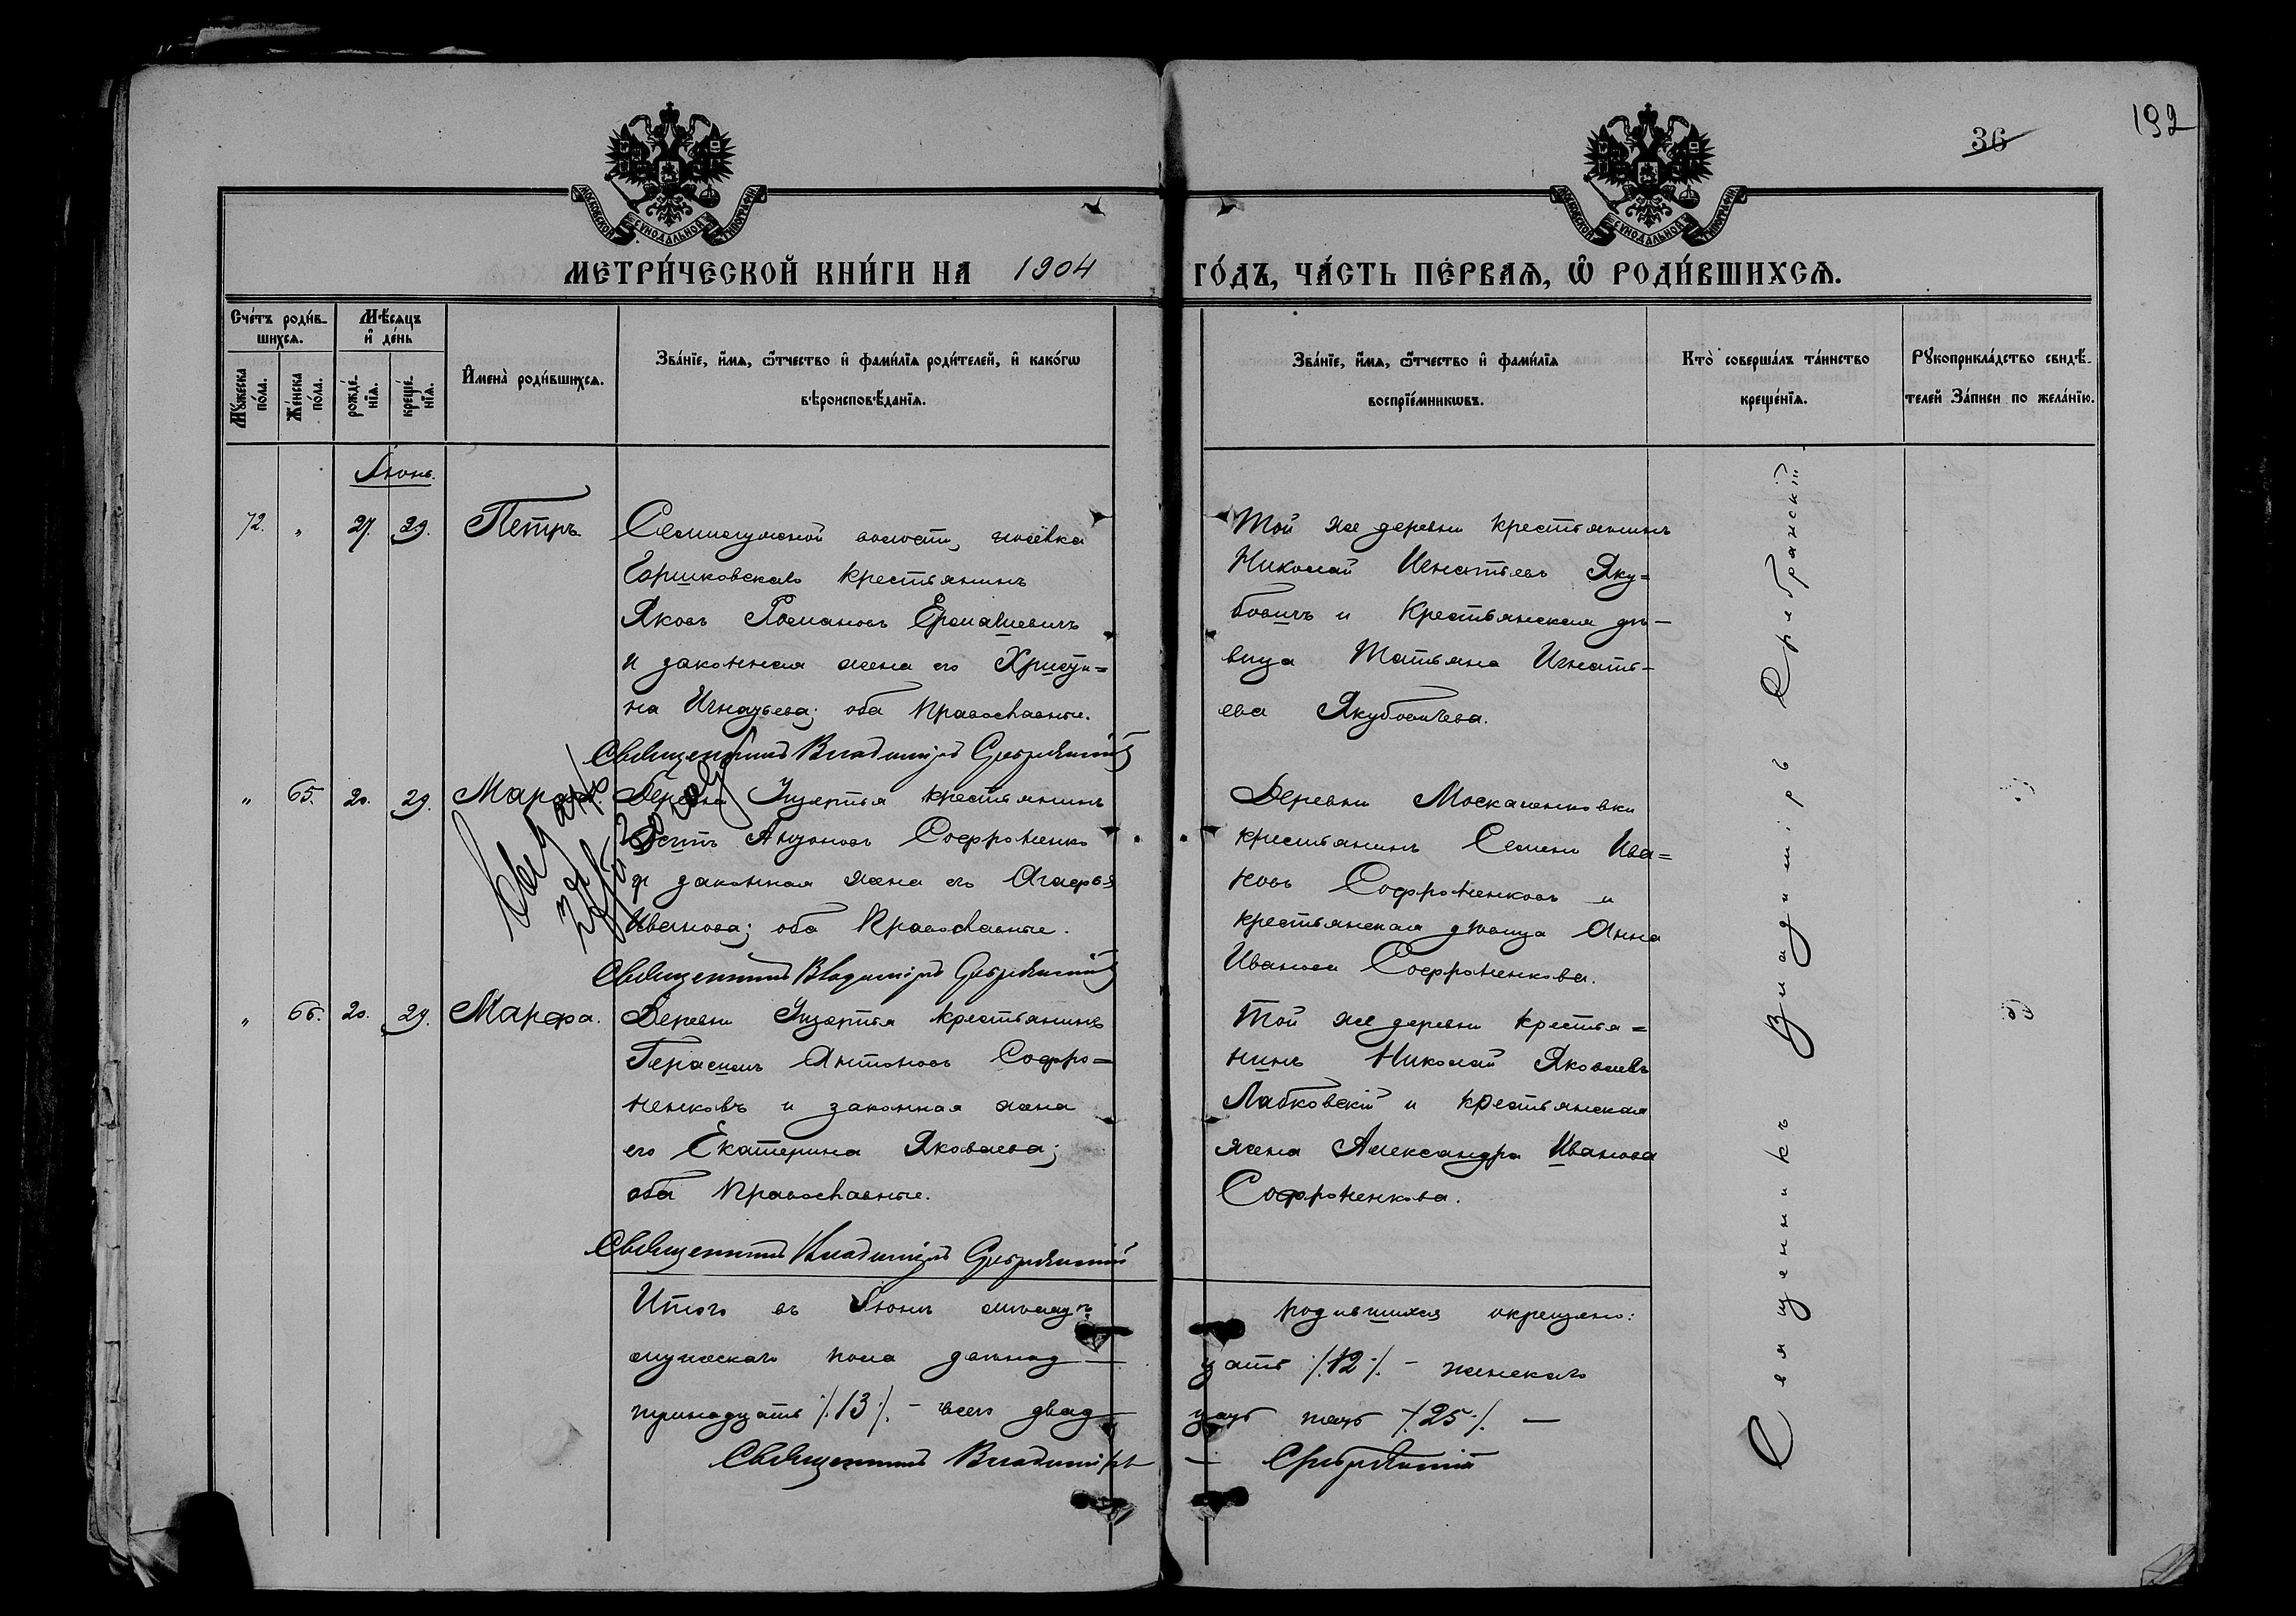 192
36
МОСКОВСКОЙ СѴНОДАЛЬНОЙ ТИПОГРАФІИ
МОСКОВСКОЙ СѴНОДАЛЬНОЙ ТИПОГРАФІИ
МЕТРИ́ЧЕСКОЙ КНИ́ГИ НА 1904 ГО́ДЪ, ЧА́СТЬ ПЕ́РВАѦ, Ѡ҆ РОДИ́ВШИХСѦ.
Сче́тъ роди́в-
шихсѧ.
Мꙋ́жеска по́ла.
Же́нска по́ла.
Мѣ́сѧцъ
и҆ де́нь
рожде́-
нїѧ.
креще́-
нїѧ.
И҆мена̀ роди́вшихсѧ.
Зва́нїе, и҆́мѧ, ѻ҆́тчество и҆ фами́лїѧ роди́телей, и҆ како́гѡ
вѣроисповѣ́данїѧ.
Зва́нїе, и҆́мѧ, ѻ҆́тчество и҆ фами́лїѧ
воспрїе́мникѡвъ.
Кто̀ соверша́лъ та́инство
креще́нїѧ.
Рꙋкоприкла́дство свидѣ́-
телей За́писи по жела́нїю.
Іюнь.
72. " 27. 29. Петръ.
волости,
Горшковскаго крестьянинъ
Яковъ Романовъ Ермашевичъ
и законная жена его Христи=
на Игнатьева; оба Православные.
Священникъ Владиміръ Сребрянскій
Той же деревни крестьянинъ
Николай Игнатьевъ Яку=
бовичъ и Крестьянская дѣ-
вица Татьяна Игнать-
ева Якубовичева.
" 65. 20. 29. Марфа.
Деревни крестьянинъ
Антоновъ Софроненко
и законная жена его Агафья
Иванова; оба Православные.
Священникъ Владиміръ Сребрянскій
Деревни Москаленковки
крестьянинъ Семенъ Ива=
новъ Софроненковъ и
крестьянская дѣвица Анна
Иванова Софроненкова.
" 66. 20. 29. Марфа.
Деревни крестьянинъ
Герасимъ Антоновъ Софро=
ненковъ и законная жена
его Екатерина Яковлева;
оба Православные.
Священникъ Владиміръ Сребрянскій
Той же деревни крестья=
нинъ Николай Яковлевъ
Лабковскій и крестьянская
жена Александра Иванова
Софроненкова.
Священникъ Владиміръ Сребрянскій
Итого въ Іюнѣ мѣсяцѣ родившихся окрещено:
мужескаго пола двѣнад— цать /.12./ - женскаго
тринадцать /.13./ - всего двад— цать пять /.25./ —
Священникъ Владиміръ — Сребрянскій